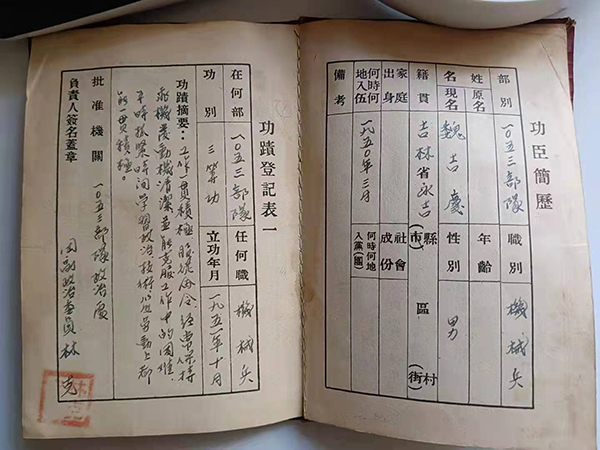 功臣簡歷
部別 一〇五三部隊 職別 機械兵
姓名 原名 現名 魏吉慶 年齡 性別 男
籍貫 吉林省永吉縣(市) 區 村(街)
家庭出身 社會成份
何時何地入伍 一九五〇年三月 何時何地入黨(團)
備考
功蹟登記表一
在何部 一〇五三部隊 任何職 機械兵
功別 三等功 立功年月 一九五一年十月
功蹟摘要：工作一貫積極服從命令經常保持
飛機發動機清潔並能克服工作中的困難．
平時抓緊時间学習政治技術以及勞動上都
能一貫積極。
批准機關 一〇五三部隊政治處
負責人簽名蓋章 团副政治委員 林克